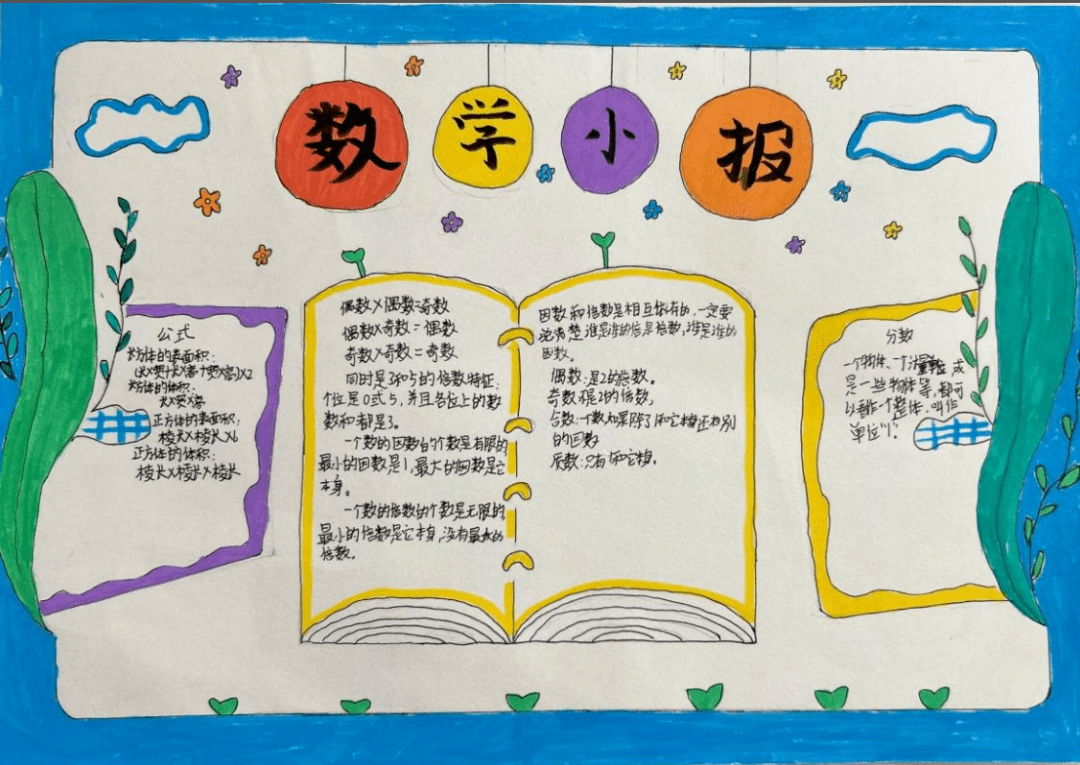 数学小报
公式
长方体的表面积:
(长×宽+长×高+宽×高)×2
长方体的体积:
长×宽×高
正方体的表面积:
棱长×棱长×6
正方体的体积:
棱长×棱长×棱长
偶数×偶数=奇数
偶数×奇数=偶数
奇数×奇数=奇数
同时是3和5的倍数特征:
个位是0或5,并且各位上的数
数和都是3。
一个数的因数的个数是有限的
最小的因数是1,最大的因数是它
本身。
一个数的倍数的个数是无限的
最小的倍数是它本身,没有最大的
倍数。
因数和倍数是相互依存的,一定要
说清楚谁是谁的倍数,谁是谁的
因数。
偶数:是2的倍数。
奇数:不是2的倍数。
合数:一个数如果除了1和它本身还有别
的因数
质数:只有1和它本身。
分数
一个物体、一个计量单位,或
是一些物体等,都可
以看作一个整体,叫作
单位"1"。